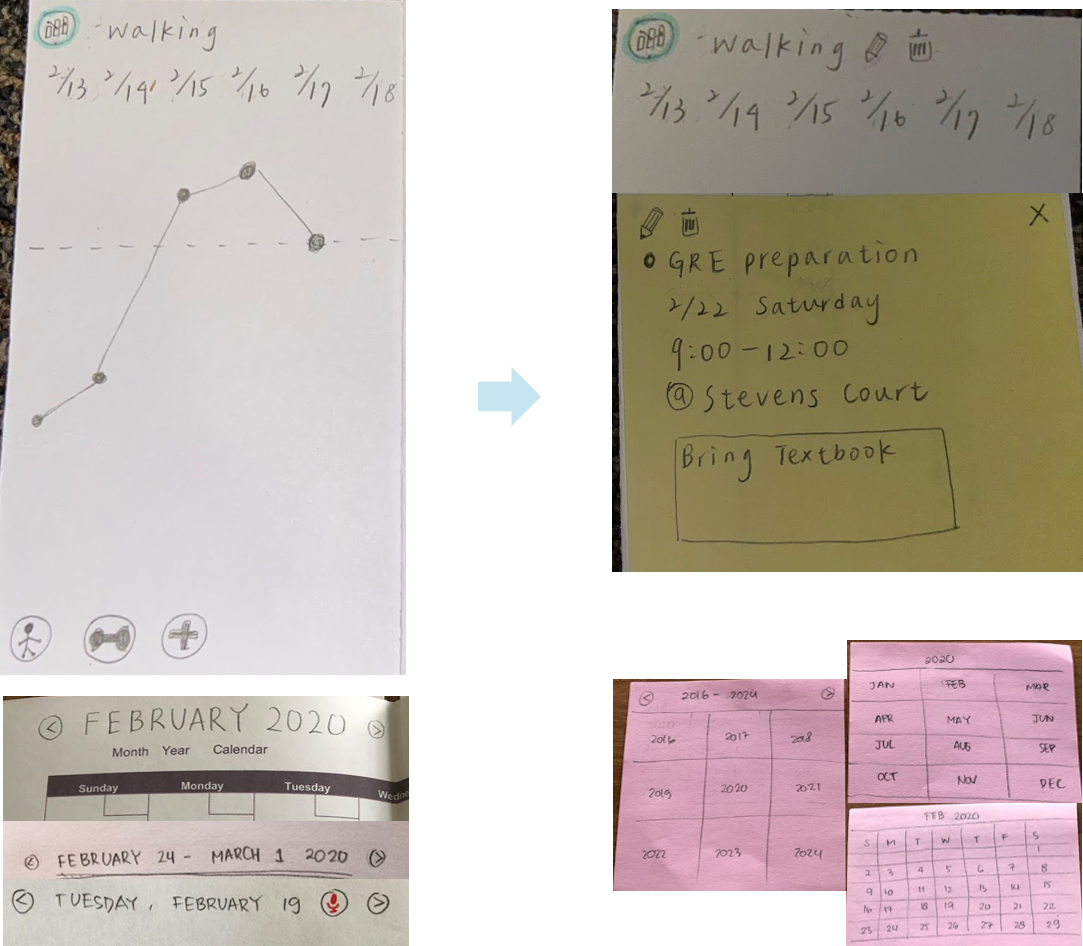 walking
2/13 2/14 2/15 2/16 2/17 2/18
walking
2/13 2/14 2/15 2/16 2/17 2/18
X
GRE preparation
2/22 Saturday
9:00 - 12:00
@ Stevens Court
Bring Textbook
< FEBRUARY 2020 >
Month Year Calendar
Sunday Monday Tuesday Wedne
< FEBRUARY 24 - MARCH 1 2020 >
< TUESDAY, FEBRUARY 19 >
< 2016 - 2024 >
2016 2017 2018
2019 2020 2021
2022 2023 2024
2020
JAN FEB MAR
APR MAY JUN
JUL AUG SEP
OCT NOV DEC
FEB 2020
S M T W T F S
1
2 3 4 5 6 7 8
9 10 11 12 13 14 15
16 17 18 19 20 21 22
23 24 25 26 27 28 29